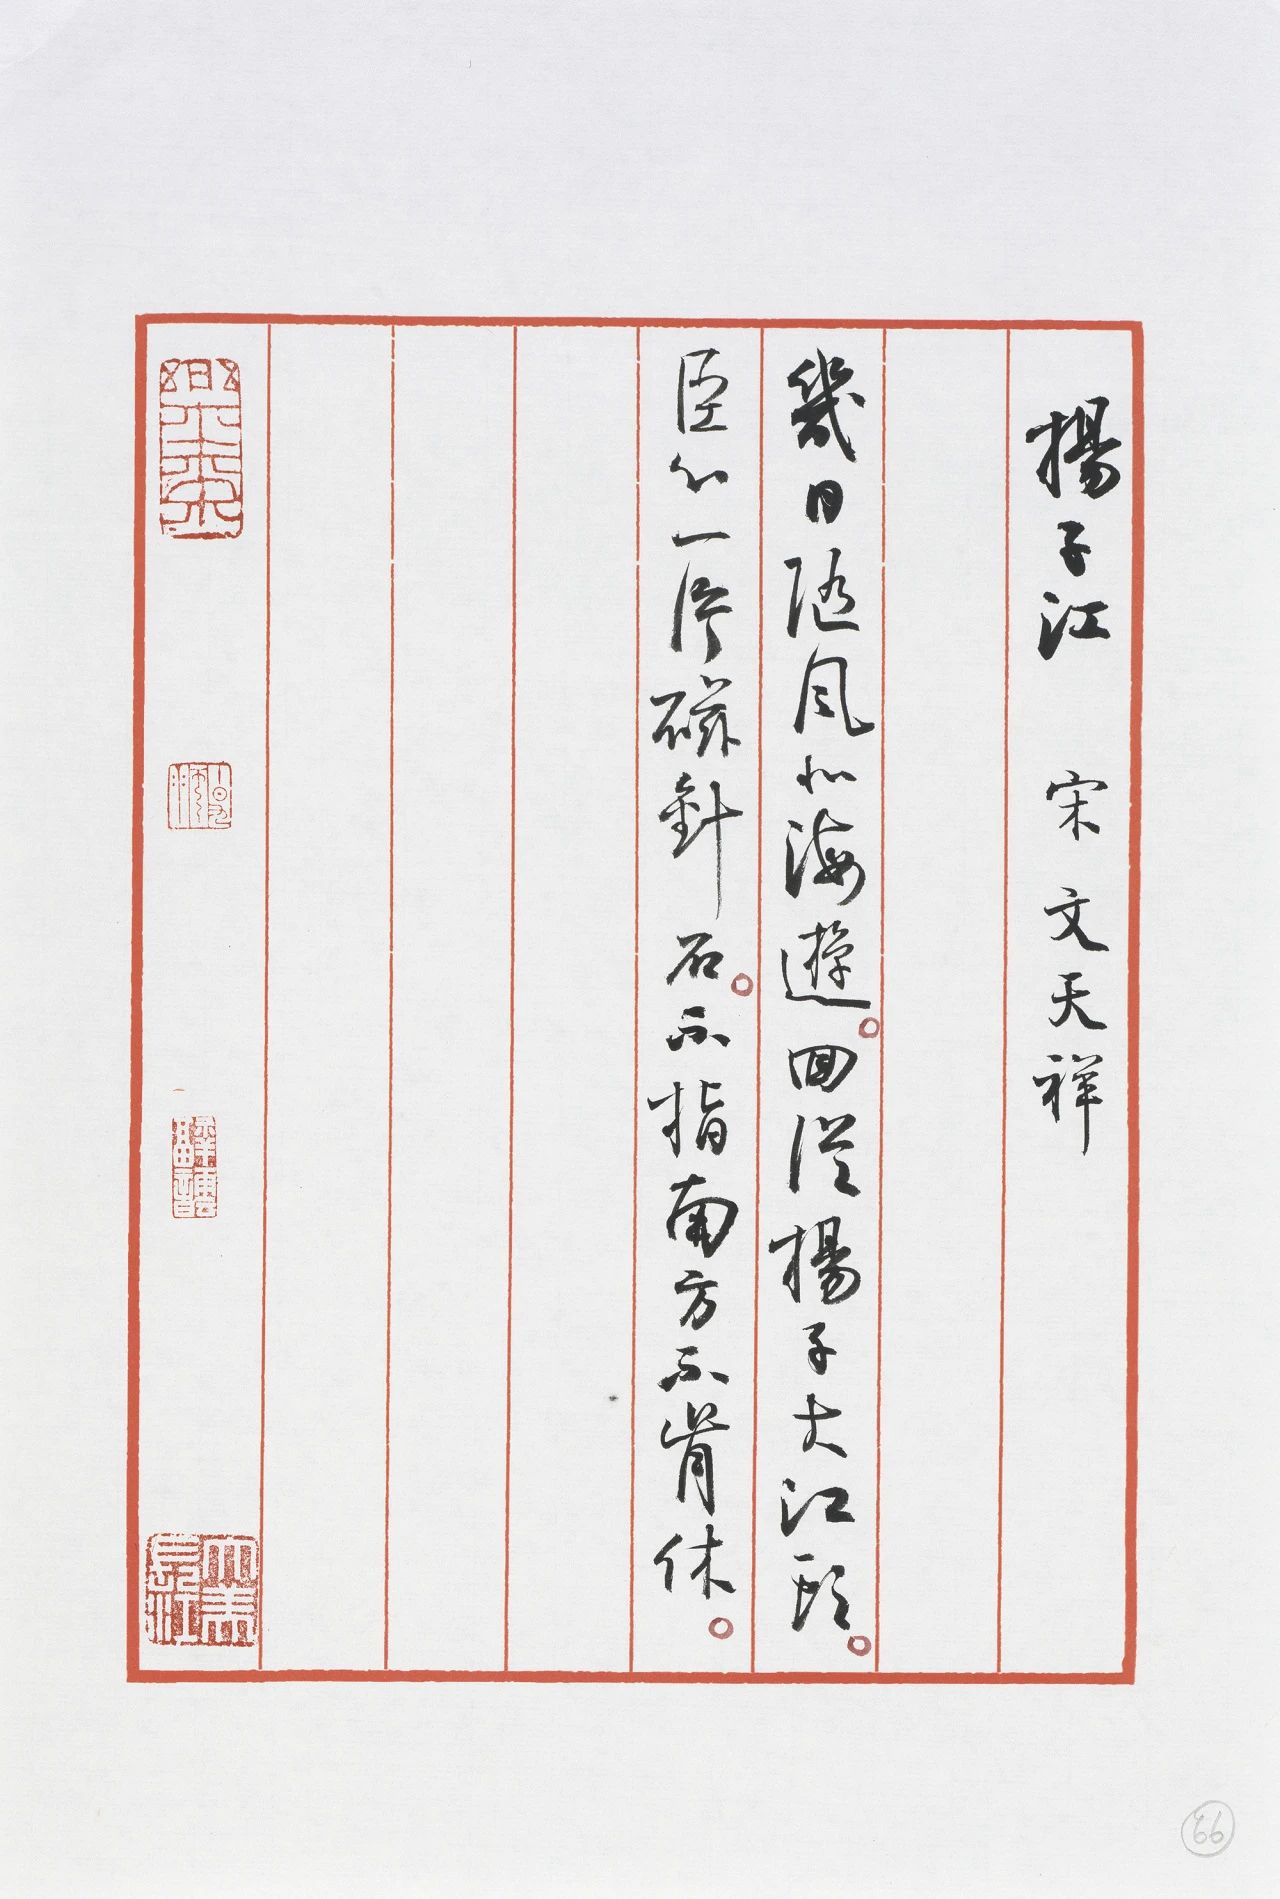 揚子江 宋 文天祥
幾日隨風北海遊。回從揚子大江頭。
臣心一片磁針石。不指南方不肯休。
66